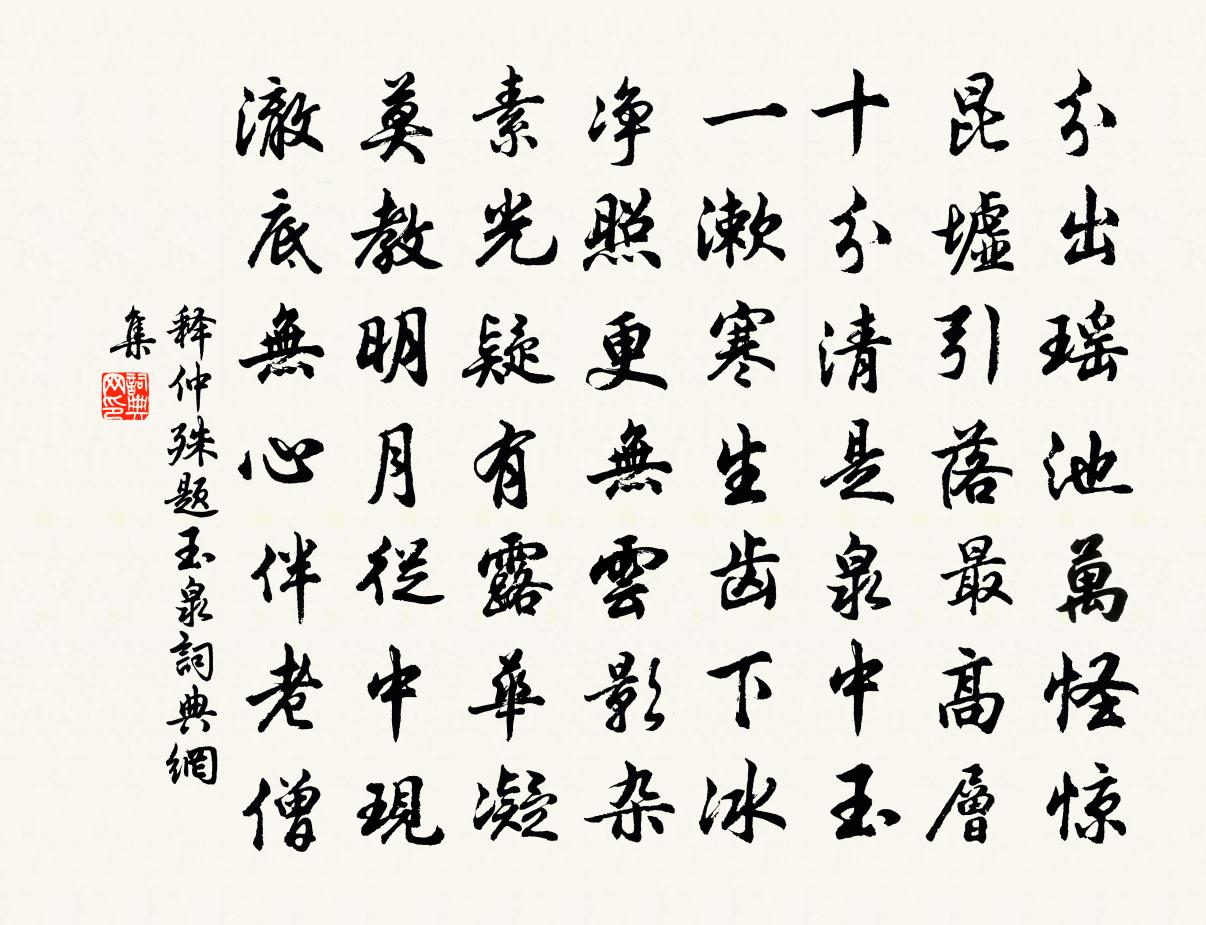 分出瑶池萬怪惊
昆墟引落最高層
十分清是泉中玉
一漱寒生齿下冰
净照更無雲影杂
素光疑有露華凝
莫教明月從中現
澈底無心伴老僧
释仲殊题玉泉詞典網
集
詞典网印